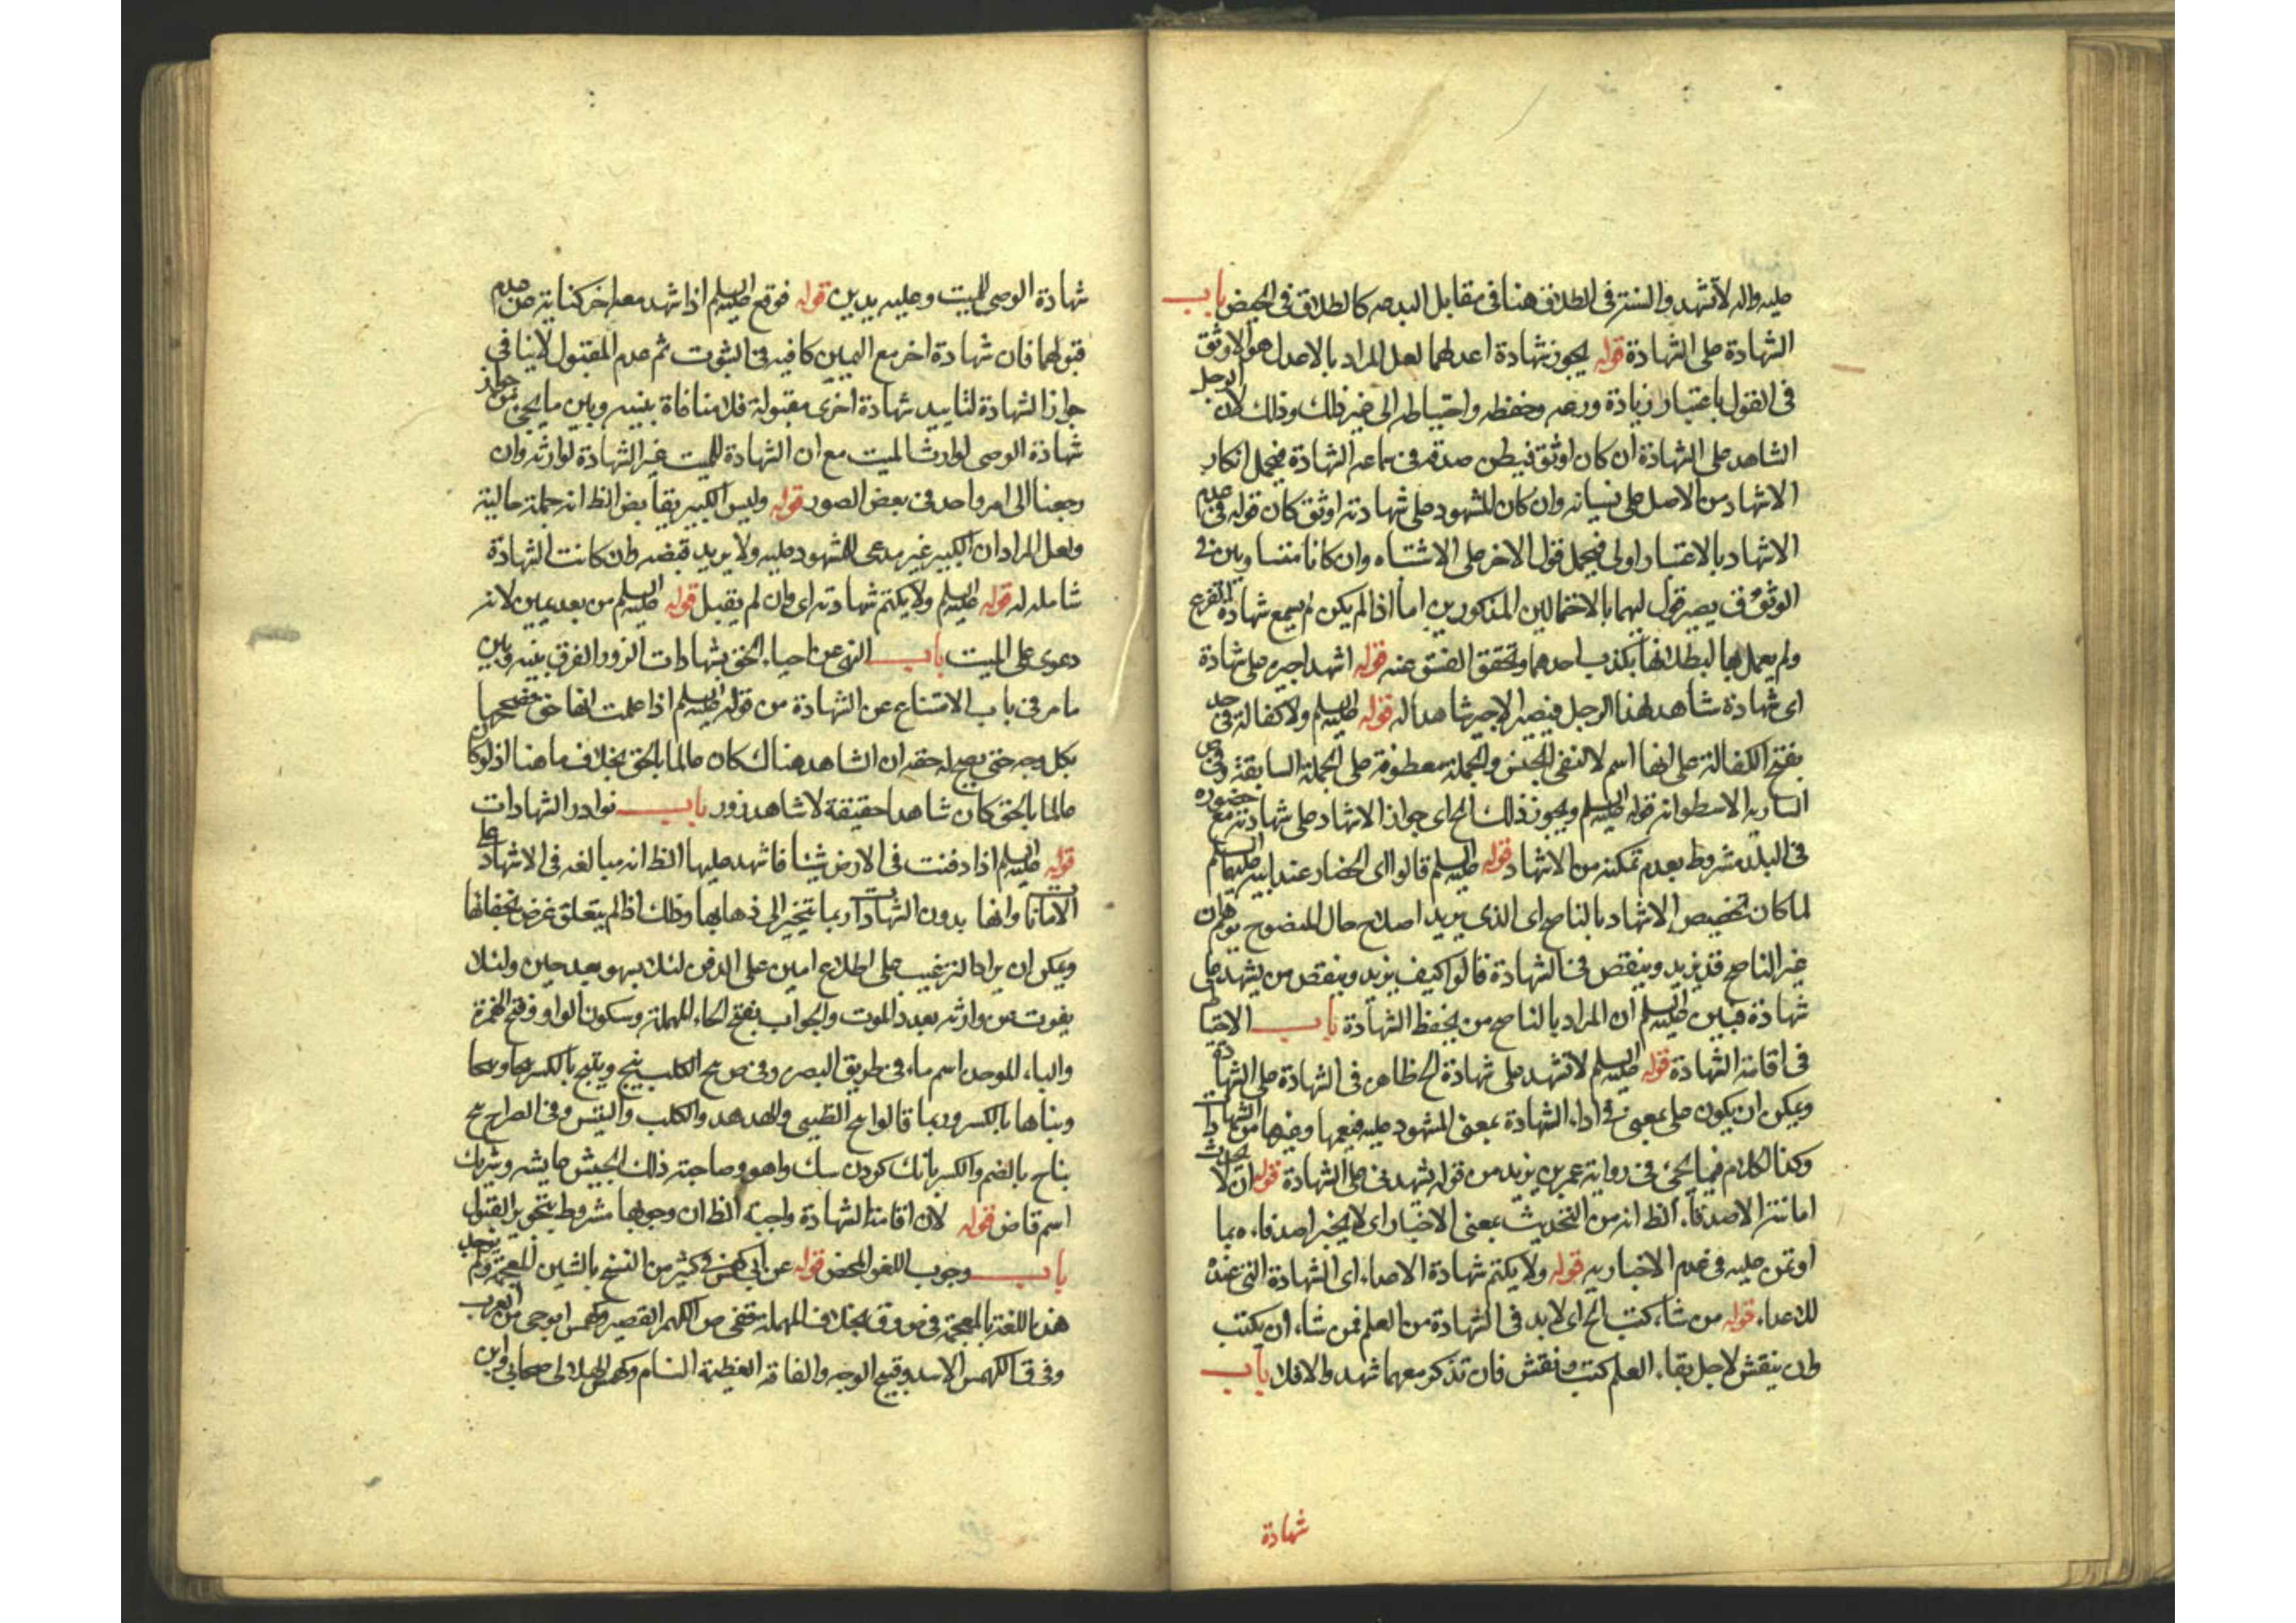 عليه واله لا تشهد والسنة في الطلاق هنا في مقابل البدعه كالطلاق في الحيض باب
الشهادة على الشهادة قوله يجوز شهادة اعدلهما لعل المراد بالاعدل هو الاوثق
في القول باعتبار زيادة ورعه وحفظه واحتياطه الى غير ذلك وذلك لان الرجل
الشاهد على الشهادة ان كان اوثق صدقه في سماعه الشهادة فيحمل انكار
الاشهاد من الاصل على نسيانه وان كان المشهود على شهادته اوثق كان قوله في عدم
الاشهاد بالاعتبار اولى فيحمل قول الاخر على الاشتباه وان كانا متساويين في
الوثوق يصير قول ايهما بالاحتمالين المذكورين اما اذا لم يكن لم يسمع شهادة الفرع
ولم يعمل بها لبطلانها بكذب احدهما وتحقق الفسق عنه قوله اشهد اجيره على شهادة
اي شهادة شاهد لهذا الرجل فيصير الاجير شاهدا له قوله عليه السلم ولا كفالة في حد
بفتح الكفالة على انها اسم لا لنفي الجنس والجملة معطوفة على الجملة السابقة وفي ص
السارية الاسطوانة قوله عليه السلم ويجوز ذلك الخ اي جواز الاشهاد على شهادته مع حضوره
في البلد مشروط بعدم تمكنه من الاشهاد قوله عليه السلم قالوا اي الحضار عند ابيه عليهما السلم
لما كان تخصيص الاشهاد بالناصح اي الذي يريد اصلاح حال المنضوح يوهم ان
غير الناصح قد يزيد وينقص في الشهادة قالوا كيف يزيد وينقص من يشهد على
شهادة فبين عليه السلم ان المراد بالناصح من يحفظ الشهادة باب الاحتياط
في اقامة الشهادة قوله عليه السلم لا تشهد على شهادة الخ ظاهر في الشهادة على الشهادة
ويمكن ان يكون على بمعنى في اداء الشهادة بمعنى المشهود عليه فيعمها وغيرها من الشهادات
وكذا الكلام فيما يجئ في رواية عمر بن يزيد من قوله يشهدني على الشهادة قوله ان لا يحدث
امانته الاصدقاء الظ انه من التحديث بمعنى الاخبار اي لا يخبر اصدقاءه بما
اوتمن عليه في عدم الاخبار به قوله ولا يكتم شهادة الاعداء اي الشهادة التي عنده
للاعداء قوله من شاء كتب الخ اي لا بد في الشهادة من العلم فمن شاء ان يكتب
وان ينقش لاجل بقاء العلم كتب ونقش فان تذكر معهما شهد والا فلا باب
شهادة
شهادة الوصي للميت وعليه بدين قوله فوقع عليه السلم اذا شهد معه اخر كناية عن عدم
قبولهما فان شهادة اخر مع اليمين كافيه في الثبوت ثم عدم المقبول لا ينافي
جواز الشهادة لتاييد شهادة اخرى مقبولة فلا منافاة بينه وبين ما يجئ من جواز
شهادة الوصي لوارث الميت مع ان الشهادة للميت غير الشهادة لوارثه وان
رجعنا الى امر واحد في بعض الصور قوله وليس الكبير بقابض الظ انه جملة حالية
ولعل المراد ان الكبير غير مدعى المشهود عليه ولا يريد قبضه وان كانت الشهادة
شامله له قوله عليه السلم ولا يكتم شهادته اي وان لم يقبل قوله عليه السلم من بعد يمين لانه
دعوى على الميت باب النهي عن احياء الحق بشهادات الزور الفرق بينه وبين
ما مر في باب الامتناع عن الشهادة من قوله عليه السلم اذا علمت انها حق فصححها
بكل وجه حتى يصح له حقه ان الشاهد هناك كان عالما بالحق بخلاف ما هنا اذ لو كان
عالما بالحق كان شاهدا حقيقة لا شاهد زور باب نوادر الشهادات
قوله عليه السلم اذا دفنت في الارض شيئا فاشهد عليها الظ انه مبالغه في الاشهاد على
الامانات وانها بدون الشهادات ربما تنجر الى ذهابها وذلك اذا لم يتعلق غرض بخفائها
ويمكن ان يراد الترغيب على اطلاع امين على الدفن لئلا يسهو بعد حين ولئلا
يفوت من وارثه بعد الموت والحوأب بفتح الحاء المهملة وسكون الواو وفتح الهمزة
والباء الموحدة اسم ماء في طريق البصره وفي ص نبح الكلب ينبح وينبح بالكسر نبحا ونبيحا
ونباحا بالكسر وربما قالوا نبح الظبي والهدهد والكلب والتيس وفي الصراح نبح
نباح بالضم والكسر بانك كردن سك واهو وصاحبة ذلك الجيش عايشه وشريك
اسم قاض قوله لان اقامة الشهادة واجبة الظ ان وجوبها مشروط بتجويز القبول
باب وجوب اللغو المحض قوله عن ابي كهمس في كثير من النسخ بالشين المعجمة ولم نجد
هذه اللغة بالمعجمة في ص و ق بخلاف المهملة ففي ص الكهمس القصير وكهمس ابو حي من العرب
وفي ق الكهمس الاسد وقبيح الوجه والناقة العظيمة السنام وكهمس الهلالي صحابي وابن